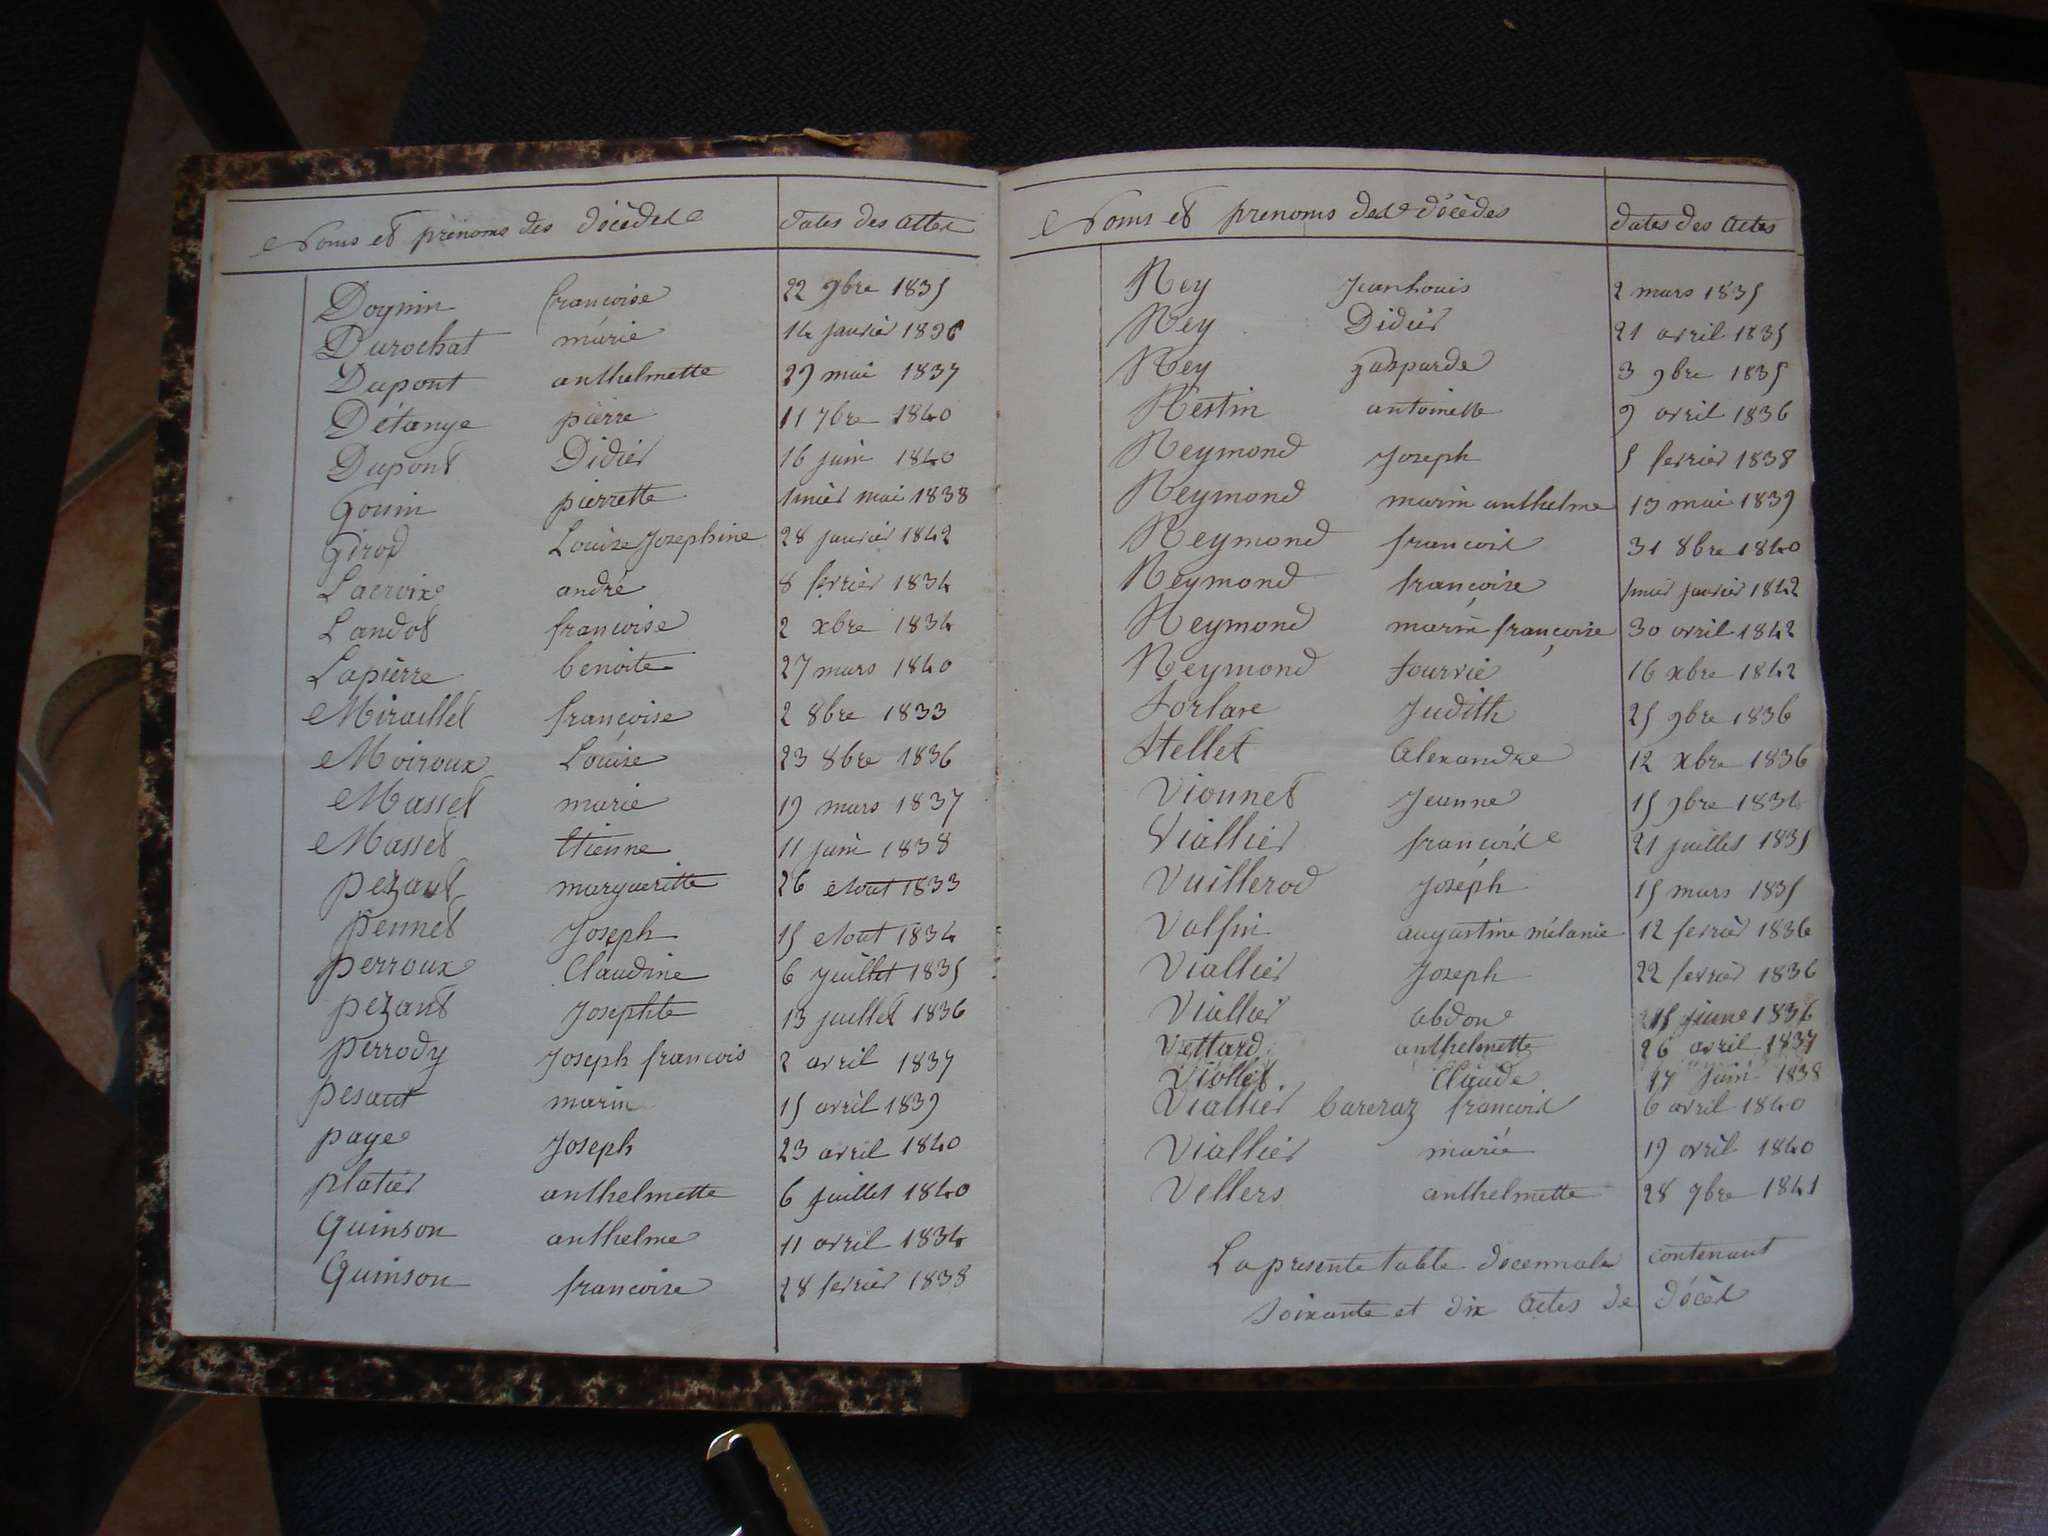 Noms et prénoms des décédés dates des Actes
Doynin françoise 22 9bre 1835
Durochat marie 14 janvier 1836
Dupont anthelmette 29 mai 1837
Détanye pierre 11 7bre 1840
Dupont Didier 16 juin 1840
Gouin pierrette 1mier mai 1838
Girod Louise Josephine 28 janvier 1842
Lacroix andré 8 fevrier 1834
Landot françoise 2 xbre 1834
Lapierre benoite 27 mars 1840
Miraillet françoise 2 8bre 1833
Moiroux Louise 23 8bre 1836
Masset marie 19 mars 1837
Masset Etienne 11 juin 1838
pezant margueritte 26 Aout 1833
pennet Joseph 15 Aout 1834
perroux Claudine 6 Juillet 1835
pezant Josephte 13 juillet 1836
perrody Joseph francois 2 avril 1837
pesant marin 15 avril 1839
paye Joseph 23 avril 1840
platier anthelmette 6 juillet 1840
Quinson anthelme 11 avril 1834
Quinson francoise 28 fevrier 1838
Noms et prenoms des décédés dates des Actes
Rey Jean Louis 2 mars 1835
Rey Didier 21 avril 1835
Rey gasparde 3 9bre 1835
Restin antoinette 9 avril 1836
Reymond Joseph 5 fevrier 1838
Reymond marin anthelme 13 mai 1839
Reymond francois 31 8bre 1840
Reymond françoise 1mier janvier 1842
Reymond marie françoise 30 avril 1842
Reymond 16 xbre 1842
Judith 25 9bre 1836
Stellet Alexandre 12 xbre 1836
Vionnet Jeanne 15 9bre 1834
Viallier françois 21 juillet 1835
Vuillerod Joseph 15 mars 1835
Valfin augustine mélanie 12 fevrier 1836
Viallier Joseph 22 fevrier 1836
Viallier abdon 1836
Vettard anthelmette 26 avril 1837
Viollet Claude 17 juin 1838
Viallier francois 6 avril 1840
Viallier marie 19 avril 1840
Vellers anthelmette 28 9bre 1841
La presente table decennale contenant
soixante et dix Actes de décès